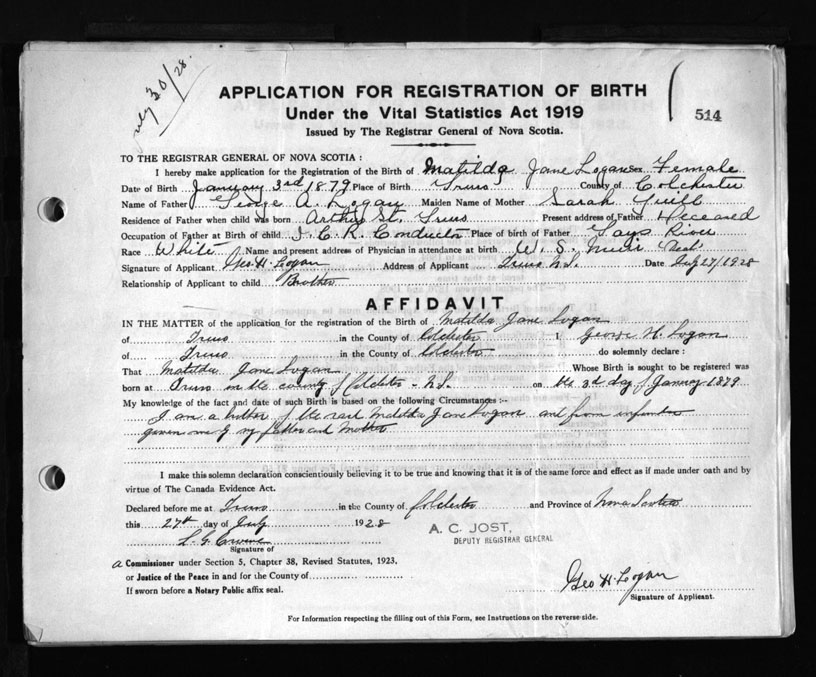 July 30/28.
APPLICATION FOR REGISTRATION OF BIRTH
Under the Vital Statistics Act 1919
514
Issued by The Registrar General of Nova Scotia.
TO THE REGISTRAR GENERAL OF NOVA SCOTIA :
I hereby make application for the Registration of the Birth of Matilda Jane Logan sex Female
Date of Birth January 3rd 1879 Place of Birth Truro County of Colchester
Name of Father George A. Logan Maiden Name of Mother Sarah Yuill
Residence of Father when child was born Arthur St. Truro Present address of Father Deceased
Occupation of Father at Birth of child I. C. R. Conductor Place of birth of Father Gays River
Race White Name and present address of Physician in attendance at birth W. S. Muir
Signature of Applicant Geo. H. Logan Address of Applicant Truro N.S. Date July 27/1928
Relationship of Applicant to child Brother
AFFIDAVIT
IN THE MATTER of the application for the registration of the Birth of Matilda Jane Logan
of Truro in the County of Colchester I George H. Logan
of Truro in the County of Colchester do solemnly declare :
That Matilda Jane Logan Whose Birth is sought to be registered was
born at Truro in the county of Colchester - N.S. on the 3rd day of January 1879
My knowledge of the fact and date of such Birth is based on the following Circumstances :-
I am a brother of the said Matilda Jane Logan and from
given me by my father and Mother
I make this solemn declaration conscientiously believing it to be true and knowing that it is of the same force and effect as if made under oath and by
virtue of The Canada Evidence Act.
Declared before me at Truro in the County of Colchester and Province of Nova Scotia
this 27th day of July 1928
A. C. JOST,
DEPUTY REGISTRAR GENERAL
Signature of
a Commissioner under Section 5, Chapter 38, Revised Statutes, 1923,
or Justice of the Peace in and for the County of
Geo. H. Logan
If sworn before a Notary Public affix seal.
Signature of Applicant.
For Information respecting the filling out of this Form, see Instructions on the reverse side.